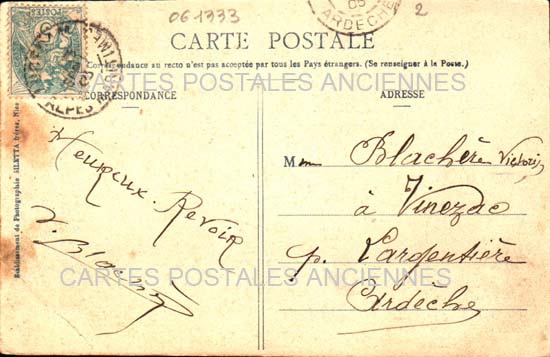 061333
2
ARDECHE
CARTE POSTALE
Correspondance au recto n'est pas acceptée par tous les Pays étrangers. (Se renseigner à la Poste.)
CARTES POSTALES ANCIENNES
CORRESPONDANCE
ADRESSE
Heureux Revoir
V. Blachère
Mme Blachère Victorin
à Vinezac
p. Largentière
Ardèche
CARTES POSTALES ANCIENNES
Etablissement de Photographie GILETTA frères, Nice